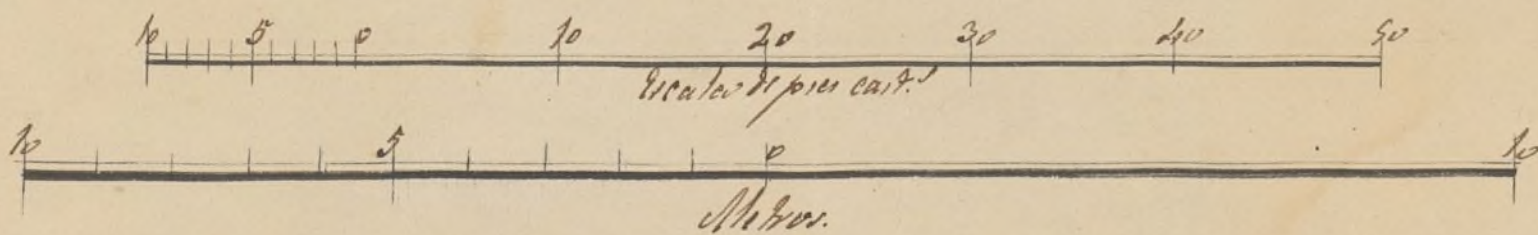 10 5 0 10 20 30 40 50
Escala de pies cast.s
10 5 0 10
Metros.